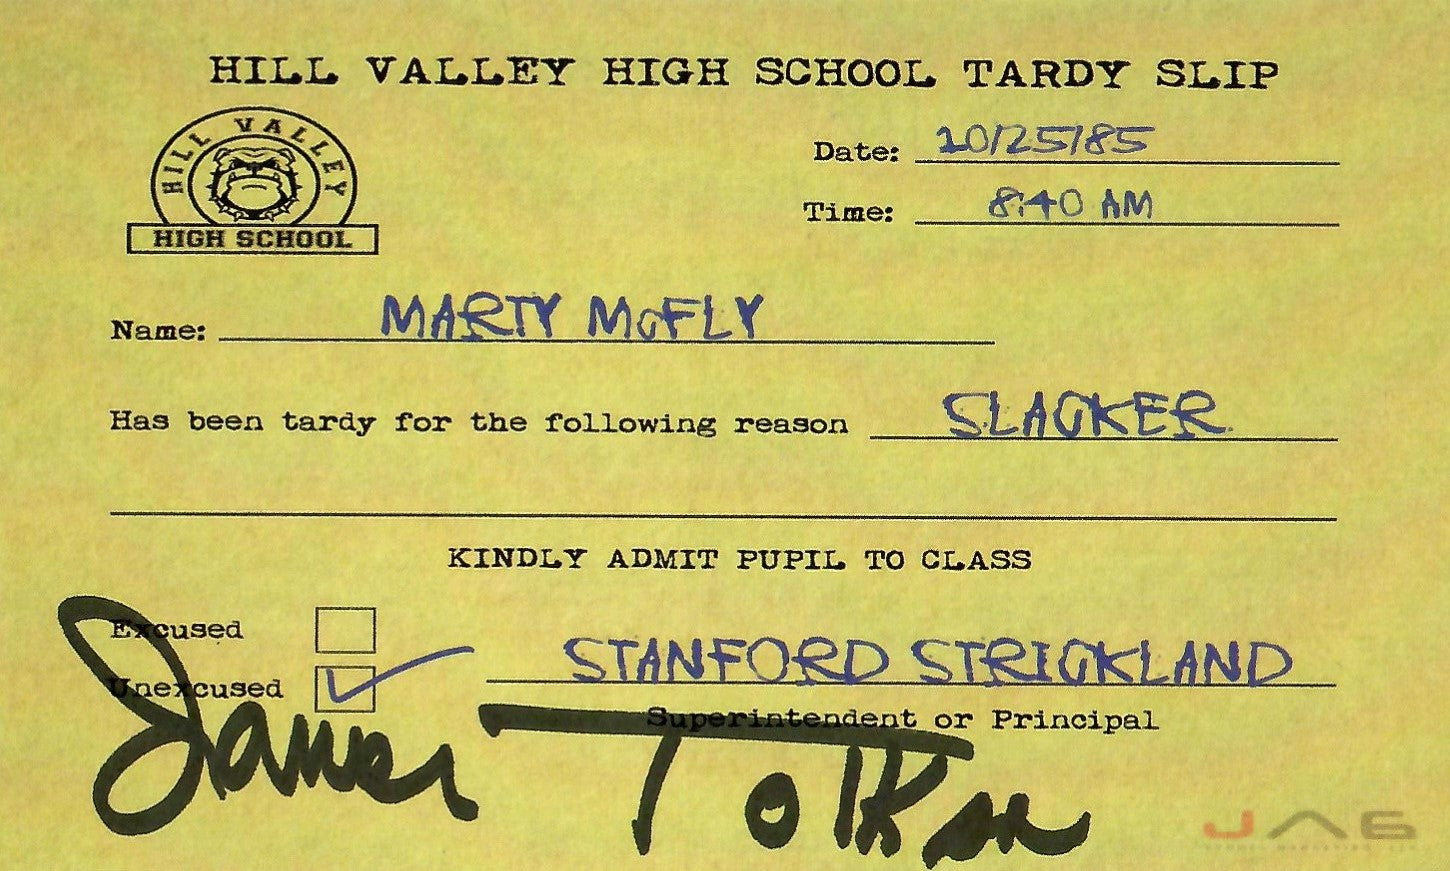 HILL VALLEY HIGH SCHOOL TARDY SLIP
HILL VALLEY
HIGH SCHOOL
Date: 10/25/85
Time: 8:40 AM
Name: MARTY McFLY
Has been tardy for the following reason SLACKER
KINDLY ADMIT PUPIL TO CLASS
Excused
Unexcused
STANFORD STRICKLAND
Superintendent or Principal
James Tolkan
JAG